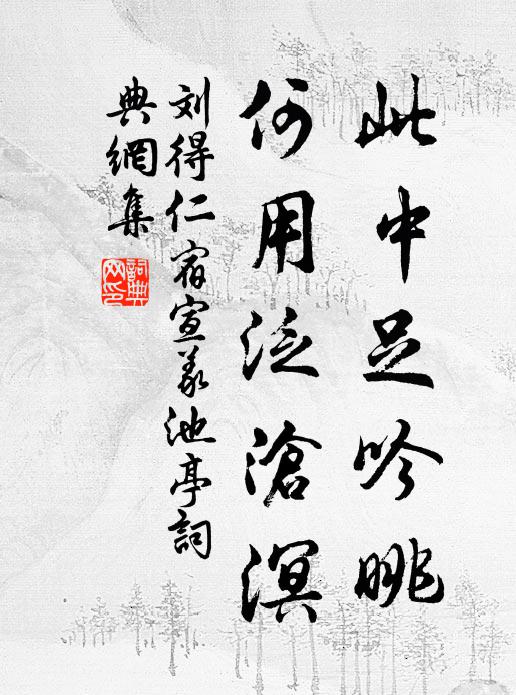 此中足吟眺
何用泛滄溟
刘得仁宿宣义池亭詞
典網集
詞典
网印